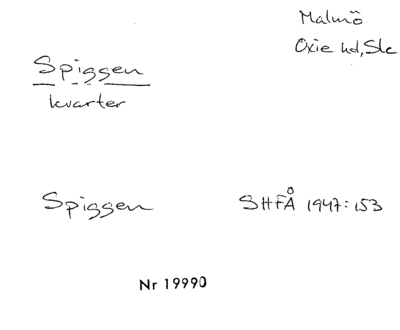 Malmö
Oxie hd, Sk
Spiggen
kvarter
Spiggen SHFÅ 1947:153
Nr 19990